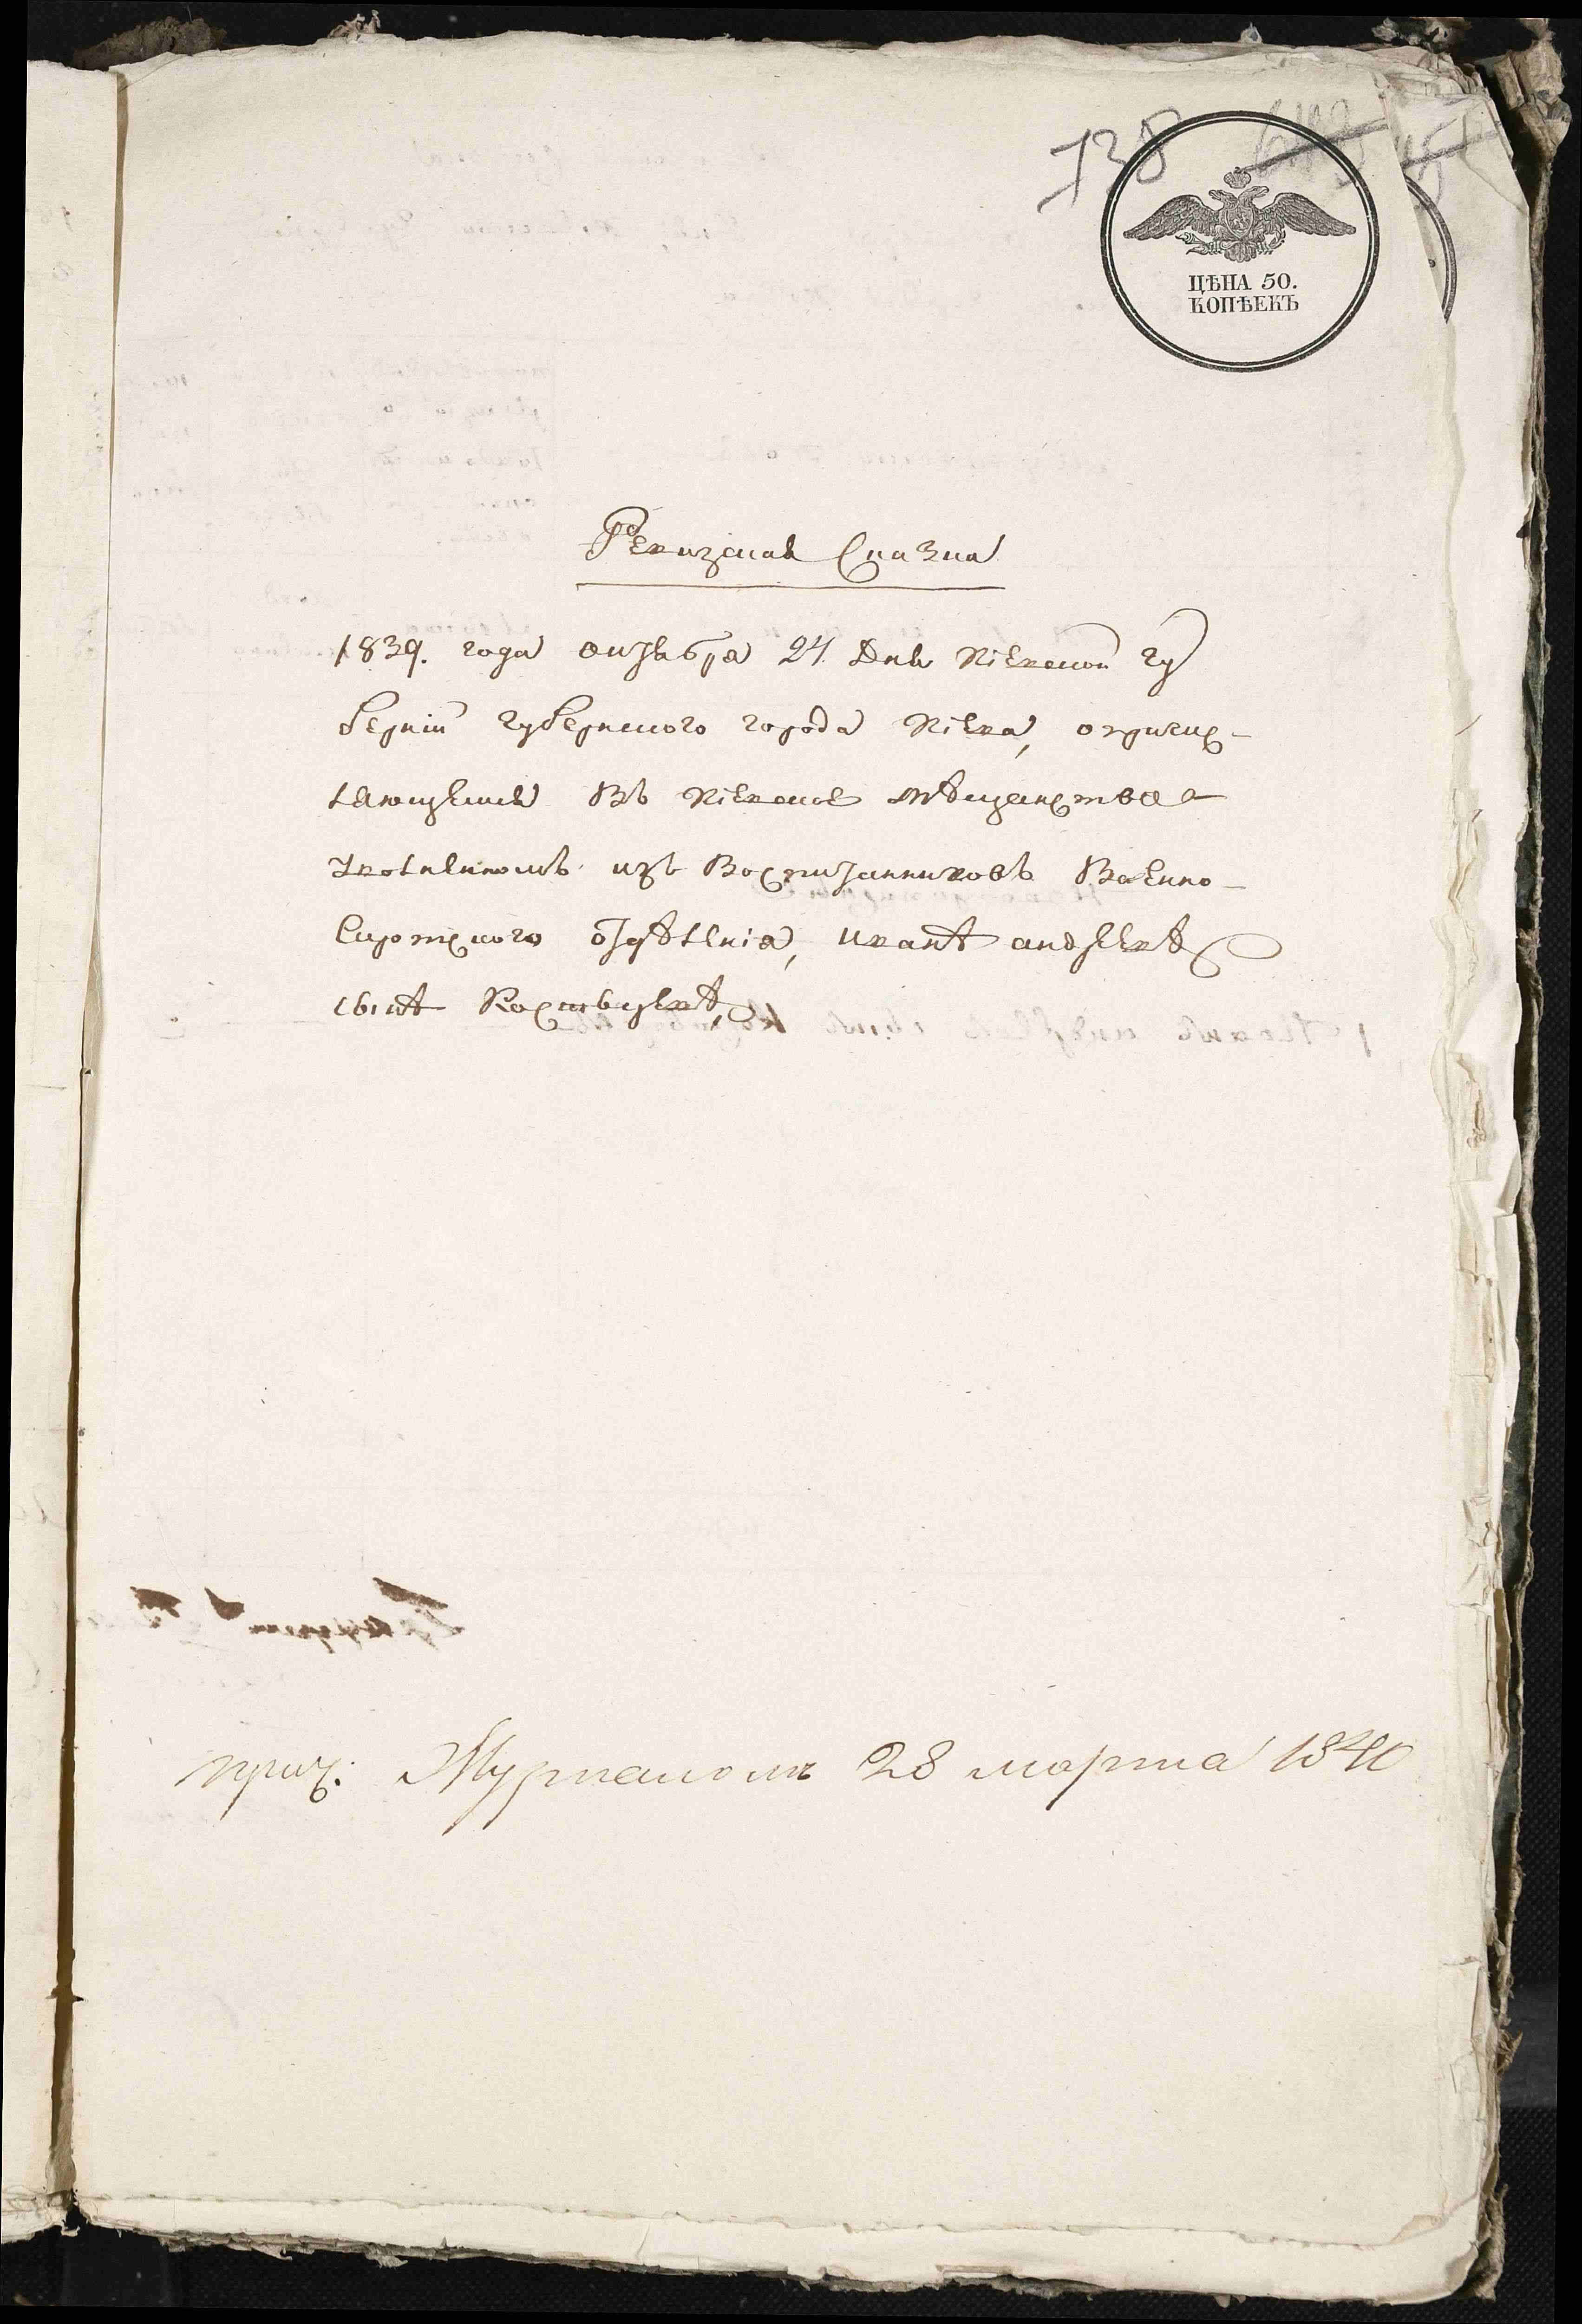 738
ЦѢНА 50.
КОПѢЕКЪ
Ревизская Сказка
1839. года октября 24 Дня Кіевской гу
берніи губернского города Кіева, о причис-
ляющемся Въ Кіевское мѣщанство
изъ Воспитанниковъ Военно-
Сиротского отдѣленія, Иванѣ Андреевѣ
сынѣ
прич: 28 марта 1840